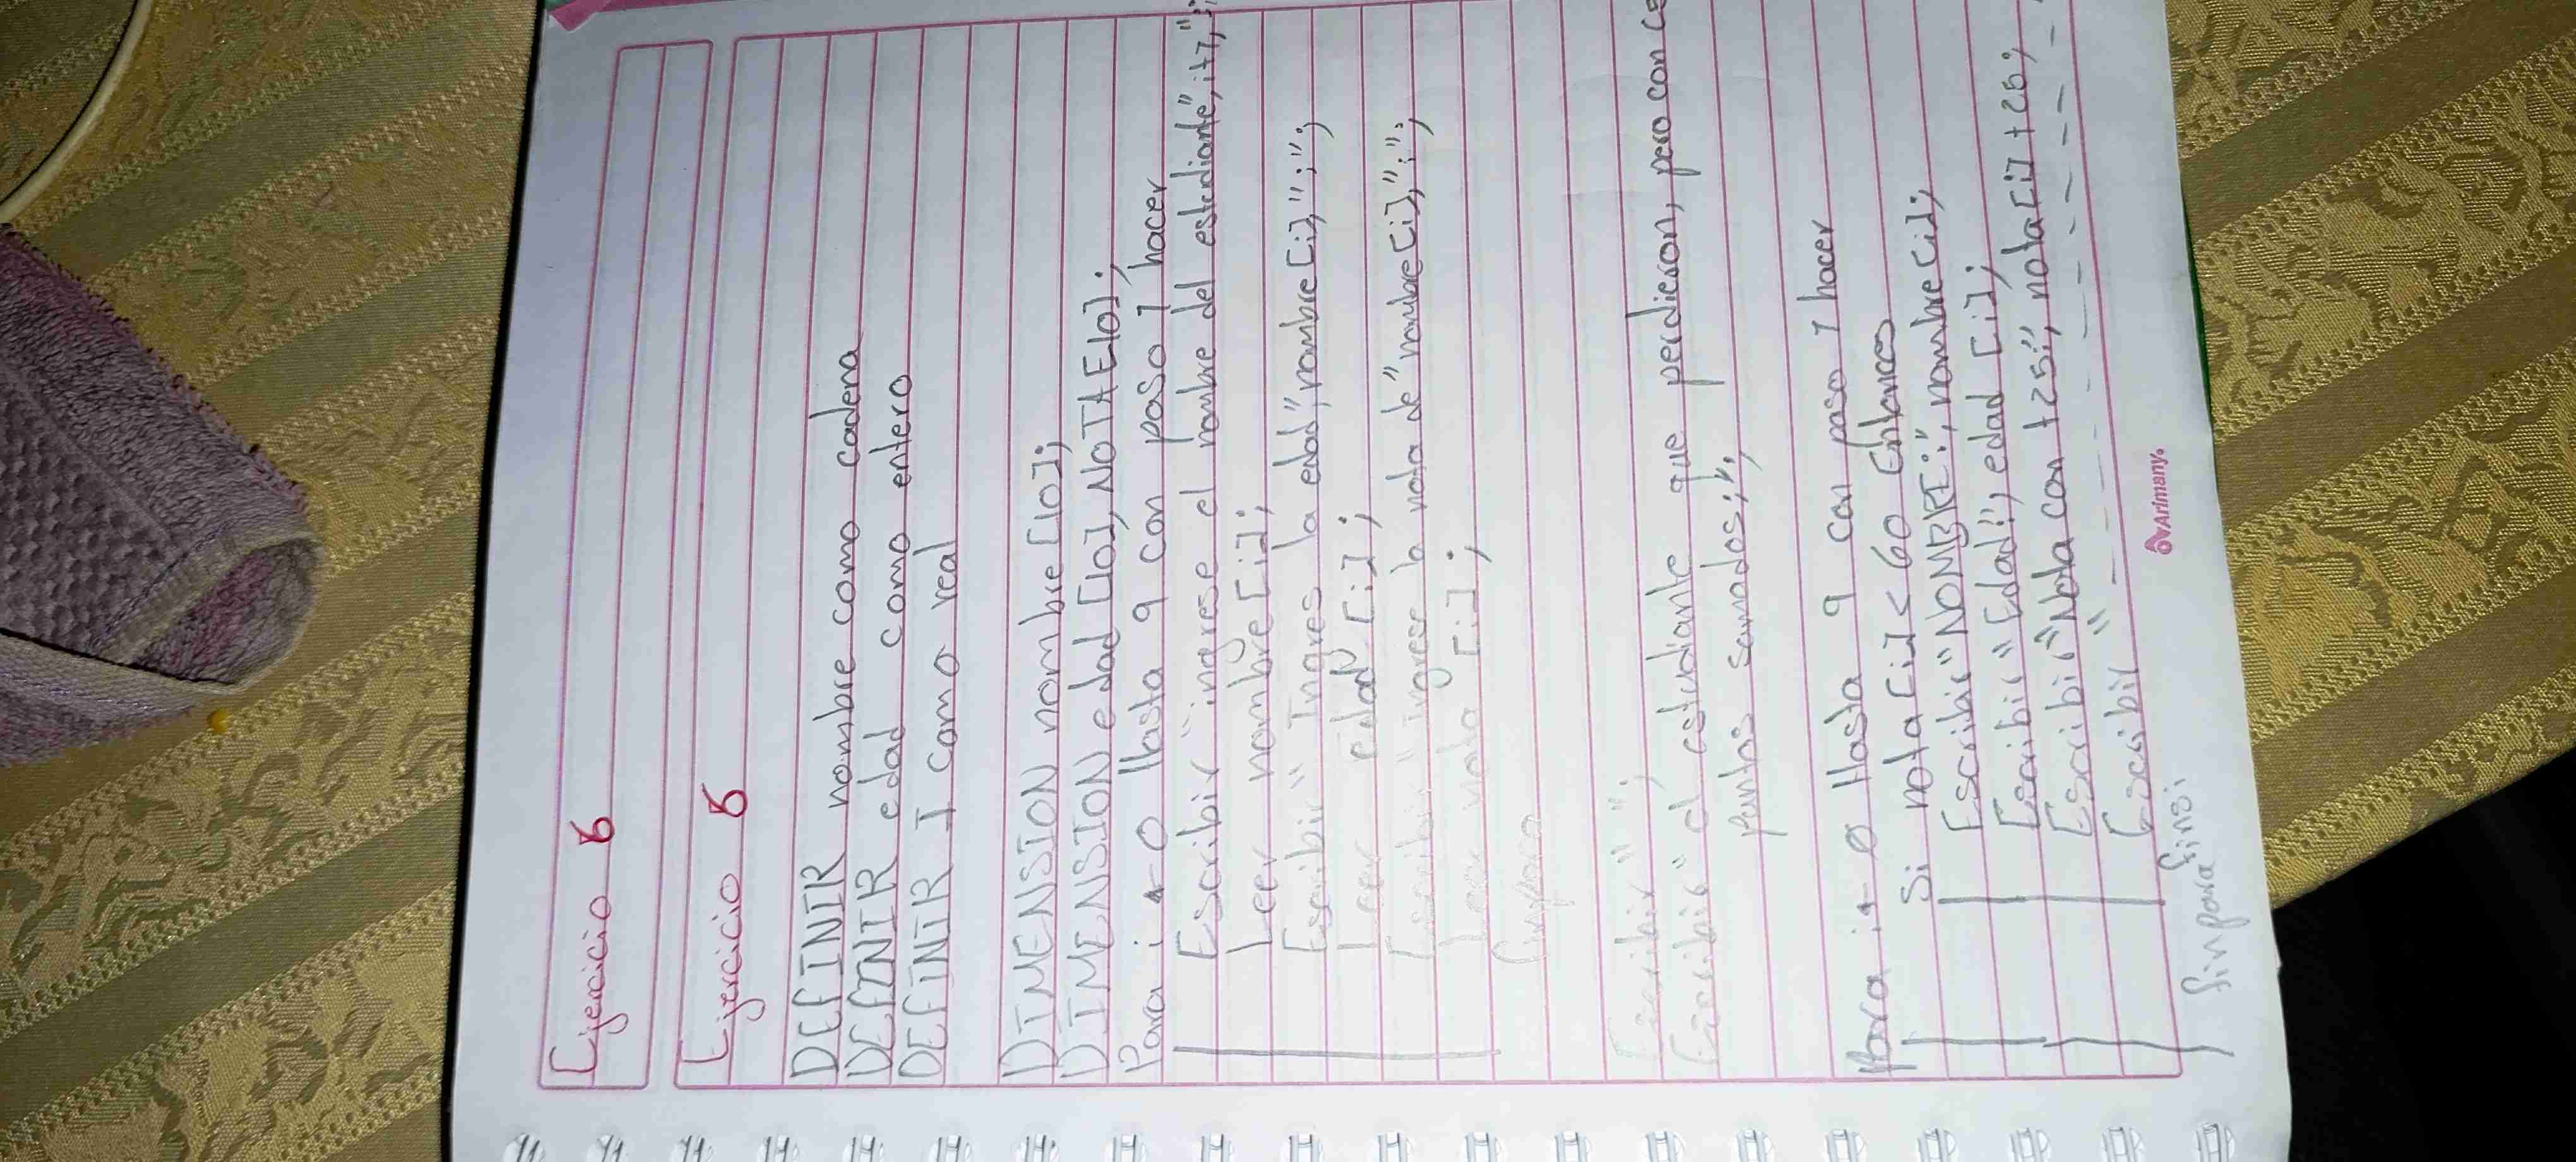 Ejercicio 6
Ejercicio 6
DEFINIR nombre como cadena
DEFINIR edad como entero
DEFINIR I como real
DIMENSION nombre[10];
DIMENSION edad[10], NOTAE10];
Para i ← 0 Hasta 9 con paso 1 hacer
Escribir "ingrese el nombre del estudiante", i+1, ":;
Leer nombre[i];
Escribir "Ingres la edad", nombre[i], ":";
Leer edad[i];
Escribir "Ingrese la nota de" nombre[i], ":";
Leer nota [i];
finpara
Escribir " ";
Escribir "el estudiante que perdieron, pero con
puntos sumados:",
para i ← 0 Hasta 9 con paso 1 hacer
Si nota[i] < 60 Entonces
Escribir "NOMBRE:", nombre[i];
Escribir "Edad:", edad[i];
Escribir "Nota con +25:", nota[i] + 25;
Escribir " - - - - - - - - - -
finsi
finpara
Arimany